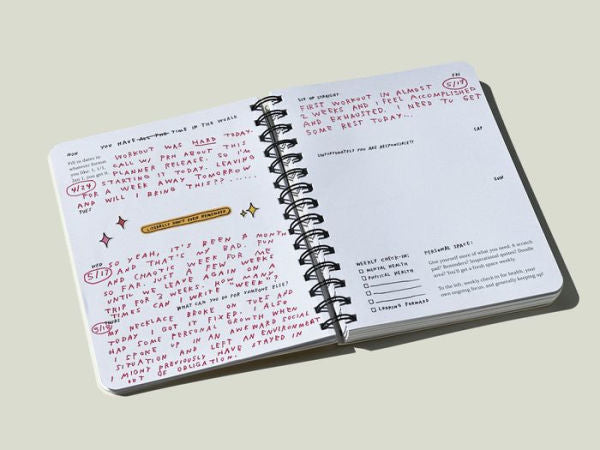 MON
YOU HAVE ALL THE TIME IN THE WORLD
Fill in dates in
whatever format
you like: 1, 1/1,
Jan 1, you got it.
4/24
WORKOUT WAS HARD TODAY.
CALL W/ PRH ABOUT THIS
PLANNER RELEASE. SO I'M
STARTING IT TODAY. LEAVING
FOR A WEEK AWAY TOMORROW
AND WILL I BRING THIS?? ......
TUES
LITERALLY DON'T EVEN REMEMBER
WED
5/17
SO YEAH, IT'S BEEN A MONTH
AND THAT'S MY BAD. FUN
AND CHAOTIC FEW WEEKS
SO FAR. JUST A WEEK FOR ME
UNTIL WE LEAVE AGAIN ON A
TRIP FOR 3 WEEKS. HOW MANY
TIMES CAN I WRITE "WEEK"?
WHAT CAN YOU DO FOR SOMEONE ELSE?
THURS
5/18
MY NECKLACE BROKE ON TUES AND
TODAY I GOT IT FIXED. ALSO
HAD SOME PERSONAL GROWTH WHEN
I SPOKE UP IN AN AWKWARD SOCIAL
SITUATION AND LEFT AN ENVIRONMENT
I MIGHT PREVIOUSLY HAVE STAYED IN
OUT OF OBLIGATION.
FRI
SIT UP STRAIGHT
5/19
FIRST WORKOUT IN ALMOST
2 WEEKS AND I FEEL ACCOMPLISHED
AND EXHAUSTED. I NEED TO GET
SOME REST TODAY...
SAT
UNFORTUNATELY YOU ARE RESPONSIBLE!!
SUN
WEEKLY CHECK-IN:
MENTAL HEALTH
PHYSICAL HEALTH
LOOKING FORWARD
PERSONAL SPACE:
Give yourself more of what you need. A scratch
pad? Reminders? Inspirational quotes? Doodle
area? You'll get a fresh space weekly.
To the left, weekly check-in for health, your
own ongoing focus, and generally keeping up!